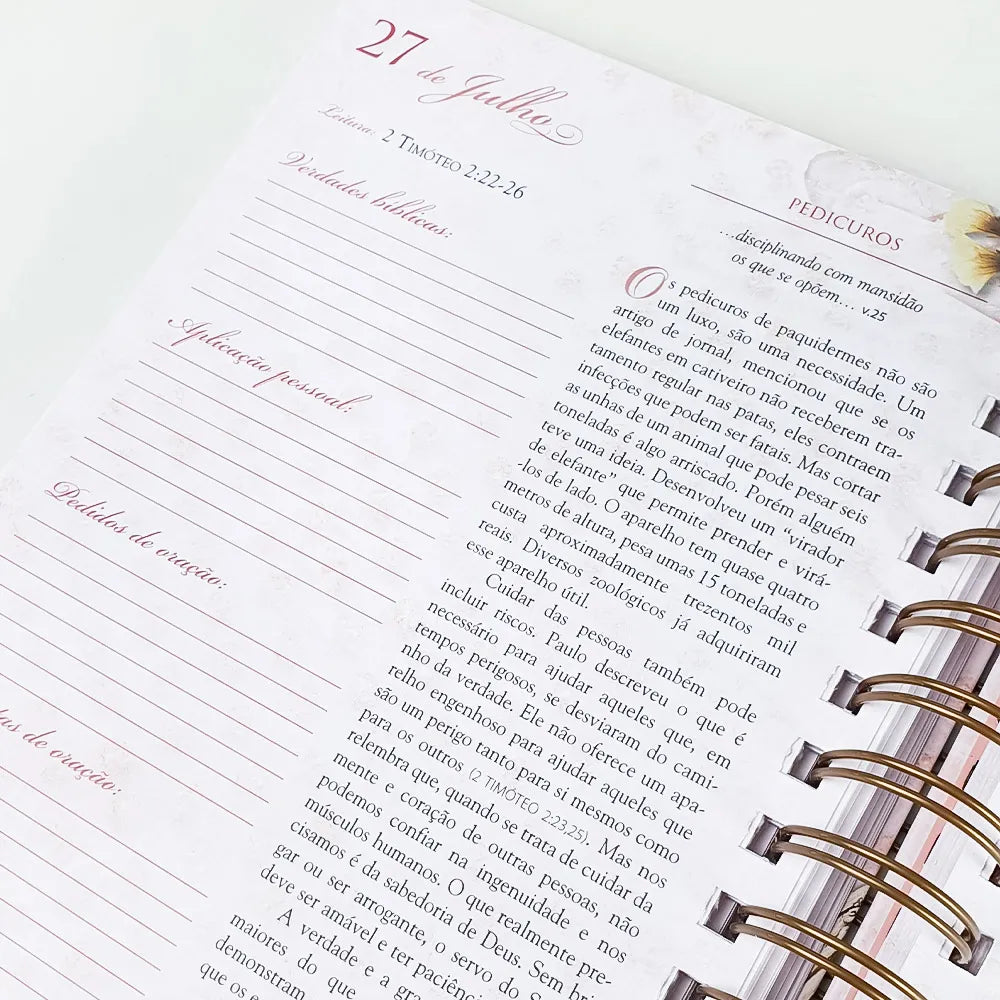 27 de Julho
Leitura: 2 TIMÓTEO 2:22-26
Verdades bíblicas:
Aplicação pessoal:
Pedidos de oração:
de oração:
PEDICUROS
...disciplinando com mansidão
os que se opõem... v.25
Os pedicuros de paquidermes não são
um luxo, são uma necessidade. Um
artigo de jornal, mencionou que se os
elefantes em cativeiro não receberem tra-
tamento regular nas patas, eles contraem
infecções que podem ser fatais. Mas cortar
as unhas de um animal que pode pesar seis
toneladas é algo arriscado. Porém alguém
teve uma ideia. Desenvolveu um “virador
de elefante” que permite prender e virá-
-los de lado. O aparelho tem quase quatro
metros de altura, pesa umas 15 toneladas e
custa aproximadamente trezentos mil
reais. Diversos zoológicos já adquiriram
esse aparelho útil.
Cuidar das pessoas também pode
incluir riscos. Paulo descreveu o que é
necessário para ajudar aqueles que, em
tempos perigosos, se desviaram do cami-
nho da verdade. Ele não oferece um apa-
relho engenhoso para ajudar aqueles que
são um perigo tanto para si mesmos como
para os outros (2 TIMÓTEO 2:23,25). Mas nos
relembra que, quando se trata de cuidar da
mente e coração de outras pessoas, não
podemos confiar na ingenuidade e nos
músculos humanos. O que realmente pre-
cisamos é da sabedoria de Deus. Sem bri
gar ou ser arrogante, o servo do S
deve ser amável e ter paciênc
A verdade e a gra
maiores do que
demonstram
que os e